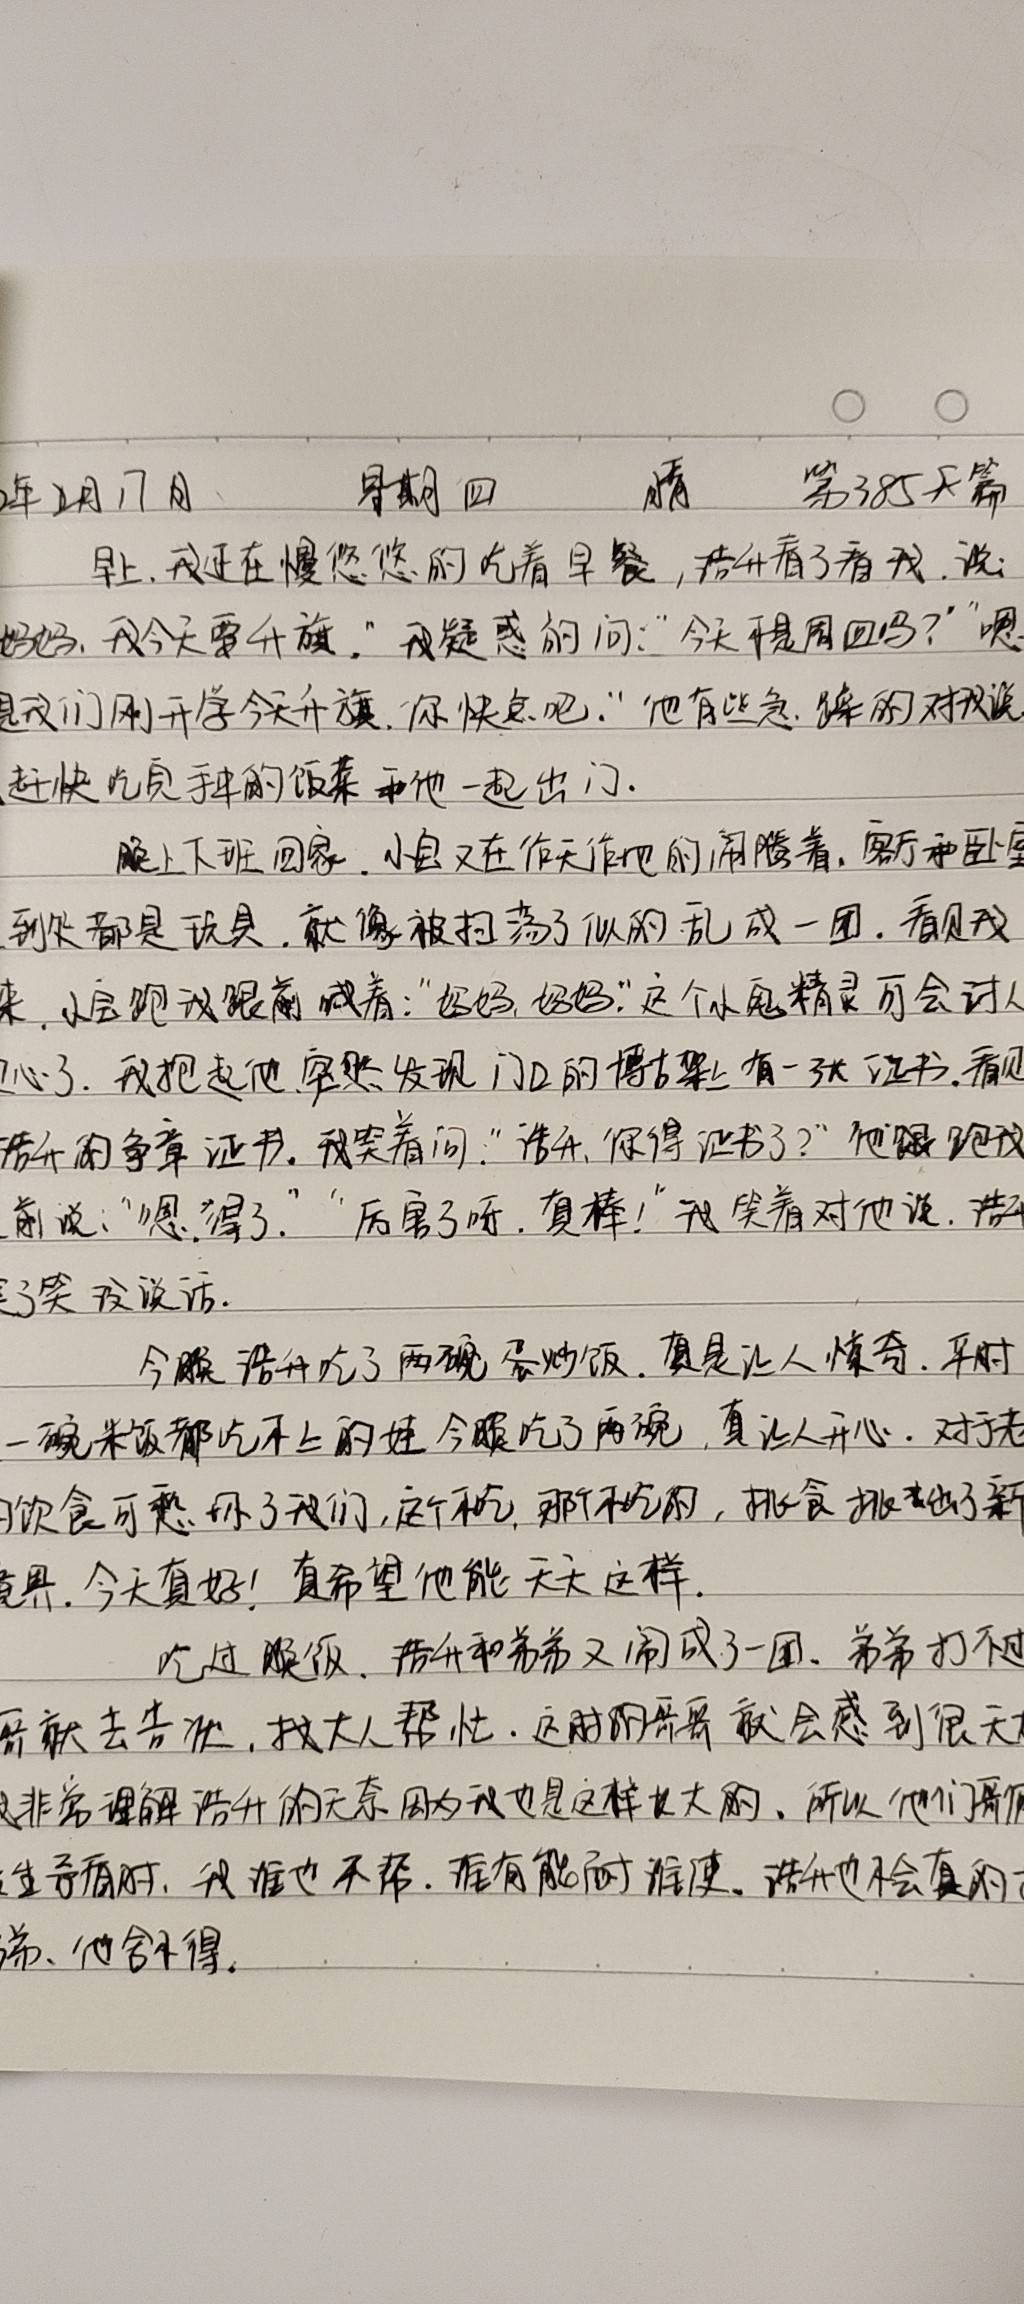 年2月17日 星期四 晴 第385天篇
早上、我正在慢悠悠的吃着早餐,浩升看了看我.说:
妈妈、我今天要升旗。"我疑惑的问:"今天不是周四吗?""嗯
是我们刚开学今天升旗.你快点吧."他有些急.躁的对我说
赶快吃完手中的饭菜和他一起出门.
晚上下班回家.小宝又在作天作地的闹腾着.客厅和卧室
到处都是玩具.就像被扫荡了似的乱成一团.看见我
来.小宝跑我跟前喊着:"妈妈,妈妈."这个小鬼精灵可会讨人
心了.我抱起他突然发现门口的博古架上有一张证书.看见
浩升的争章证书。我笑着问:"浩升、你得证书了?"他跟跑我
前说:"嗯.得了.""厉害了呀.真棒!"我笑着对他说.浩升
笑了笑没说话.
今晚浩升吃了两碗蛋炒饭.真是让人惊奇.平时
一碗米饭都吃不上的娃今晚吃了两碗,真让人开心.对于老
的饮食可愁坏了我们,这个不吃,那个不吃的,挑食挑出了新
境界.今天真好!真希望他能天天这样.
吃过晚饭、浩升和弟弟又闹成了一团、弟弟打不过
哥就去告状,找大人帮忙.这时的哥哥就会感到很无
我非常理解浩升的无奈因为我也是这样长大的、所以他们哥俩
生矛盾时、我谁也不帮.谁有能耐谁使。浩升也不会真的
弟、他舍不得.